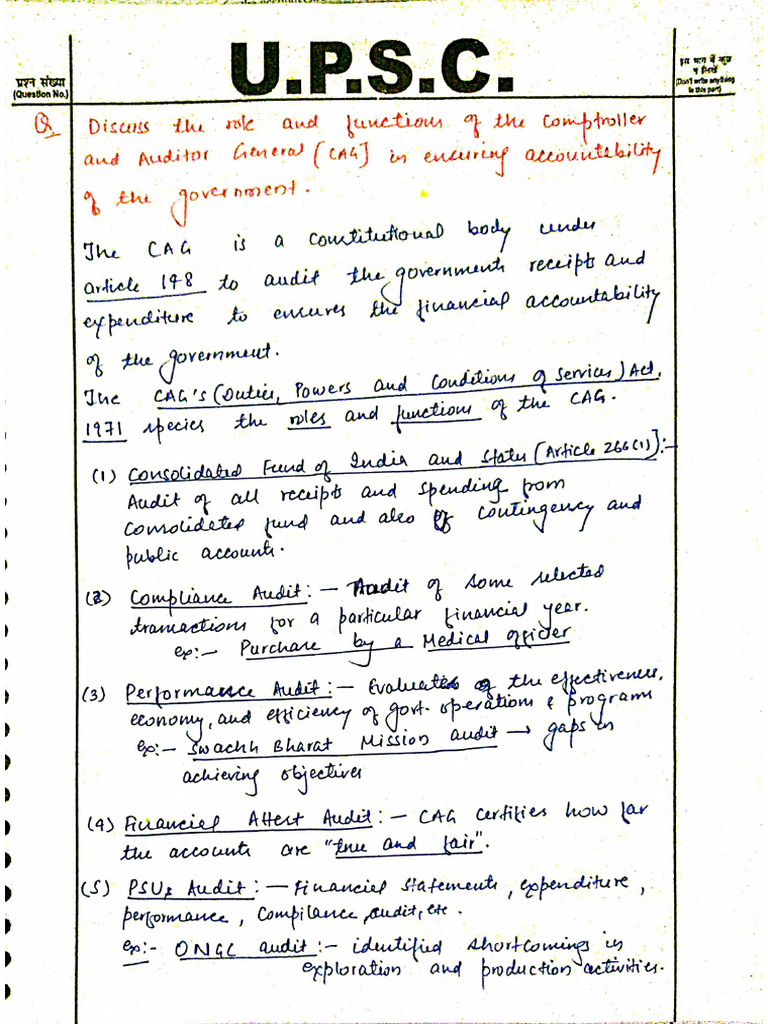 U.P.S.C.
प्रश्न संख्या
(Question No.)
इस भाग में कुछ
न लिखें
(Don't write anything
in this part)
Q. Discuss the role and functions of the Comptroller
and Auditor General (CAG] in ensuring accountability
of the government.
The CAG is a constitutional body under
article 148 to audit the governments receipts and
expenditure to ensures the financial accountability
of the government.
The CAG's (Duties, Powers and Conditions of Services) Act,
1971 species the roles and functions of the CAG.
(1) Consolidated Fund of India and States (Article 266(1)):-
Audit of all receipts and spending from
consolidated fund and also of contingency and
public accounts.
(2) Compliance Audit :- Audit of some selected
transactions for a particular financial year.
ex:- Purchase by a Medical officer
(3) Performance Audit :- Evaluates of the effectiveness,
economy, and efficiency of govt. operations & programs
ex:- Swachh Bharat Mission audit → gaps in
achieving objectives
(4) Financial Attest Audit :- CAG certifies how far
the accounts are "true and fair".
(5) PSUs Audit :- Financial statements, expenditure,
performance, compilance audit, etc.
ex:- ONGC audit :- identified shortcomings in
exploration and production activities.